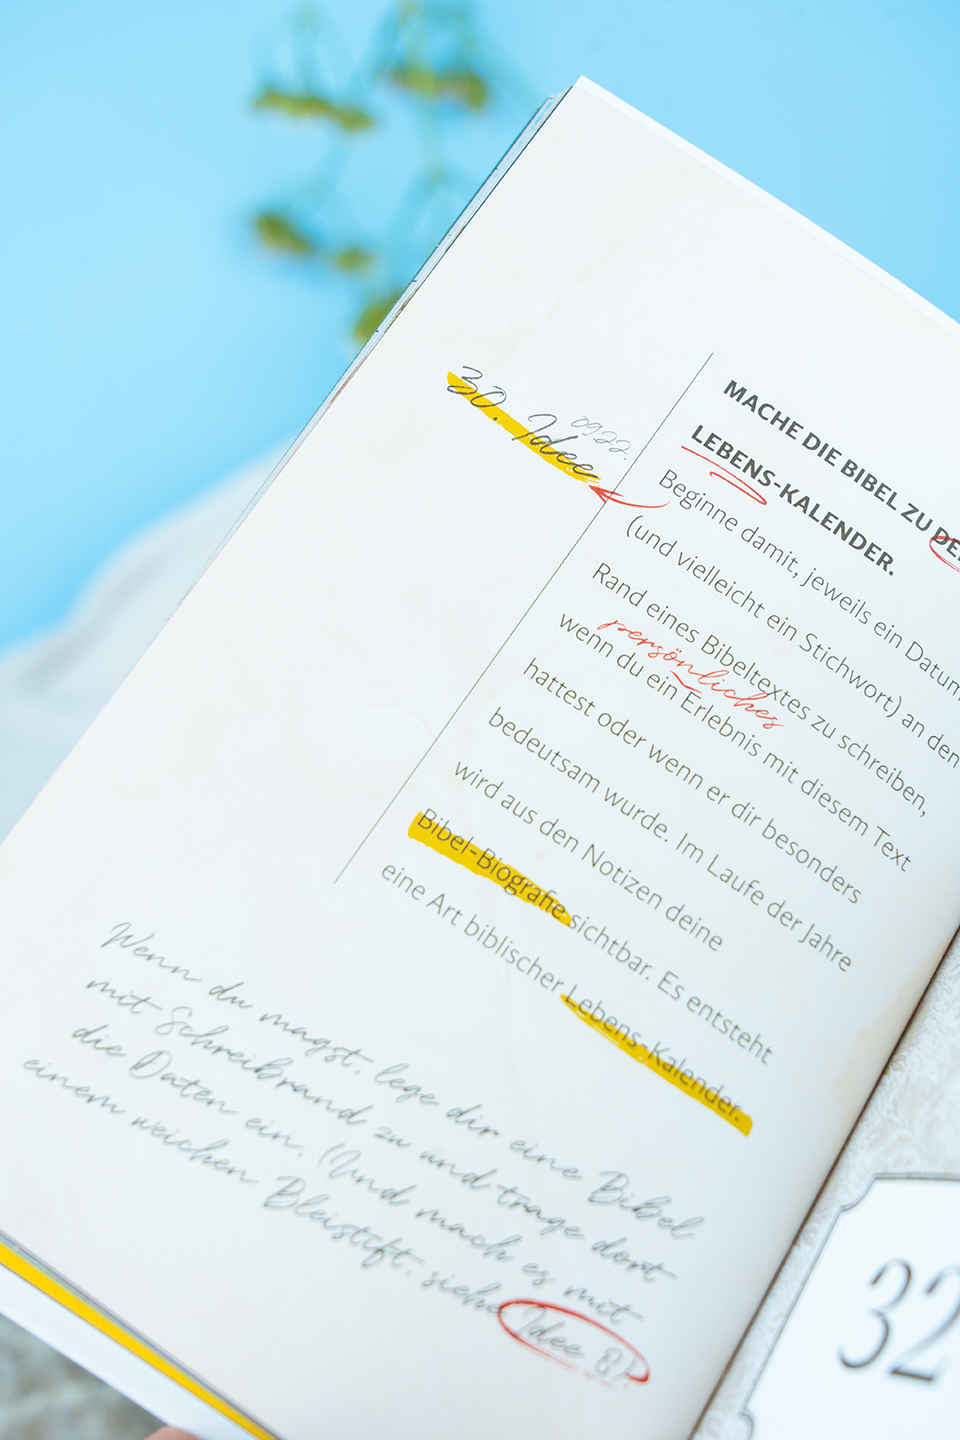 30. Idee
09.22.
MACHE DIE BIBEL ZU
LEBENS-KALENDER.
Beginne damit, jeweils ein Datum
(und vielleicht ein Stichwort) an den
Rand eines Bibeltextes zu schreiben,
persönliches
wenn du ein Erlebnis mit diesem Text
hattest oder wenn er dir besonders
bedeutsam wurde. Im Laufe der Jahre
wird aus den Notizen deine
Bibel-Biografie sichtbar. Es entsteht
eine Art biblischer Lebens-Kalender.
Wenn du magst, lege dir eine Bibel
mit Schreibrand zu und trage dort
die Daten ein. (Und mach es mit
einem weichen Bleistift, siehe Idee 8!)
32